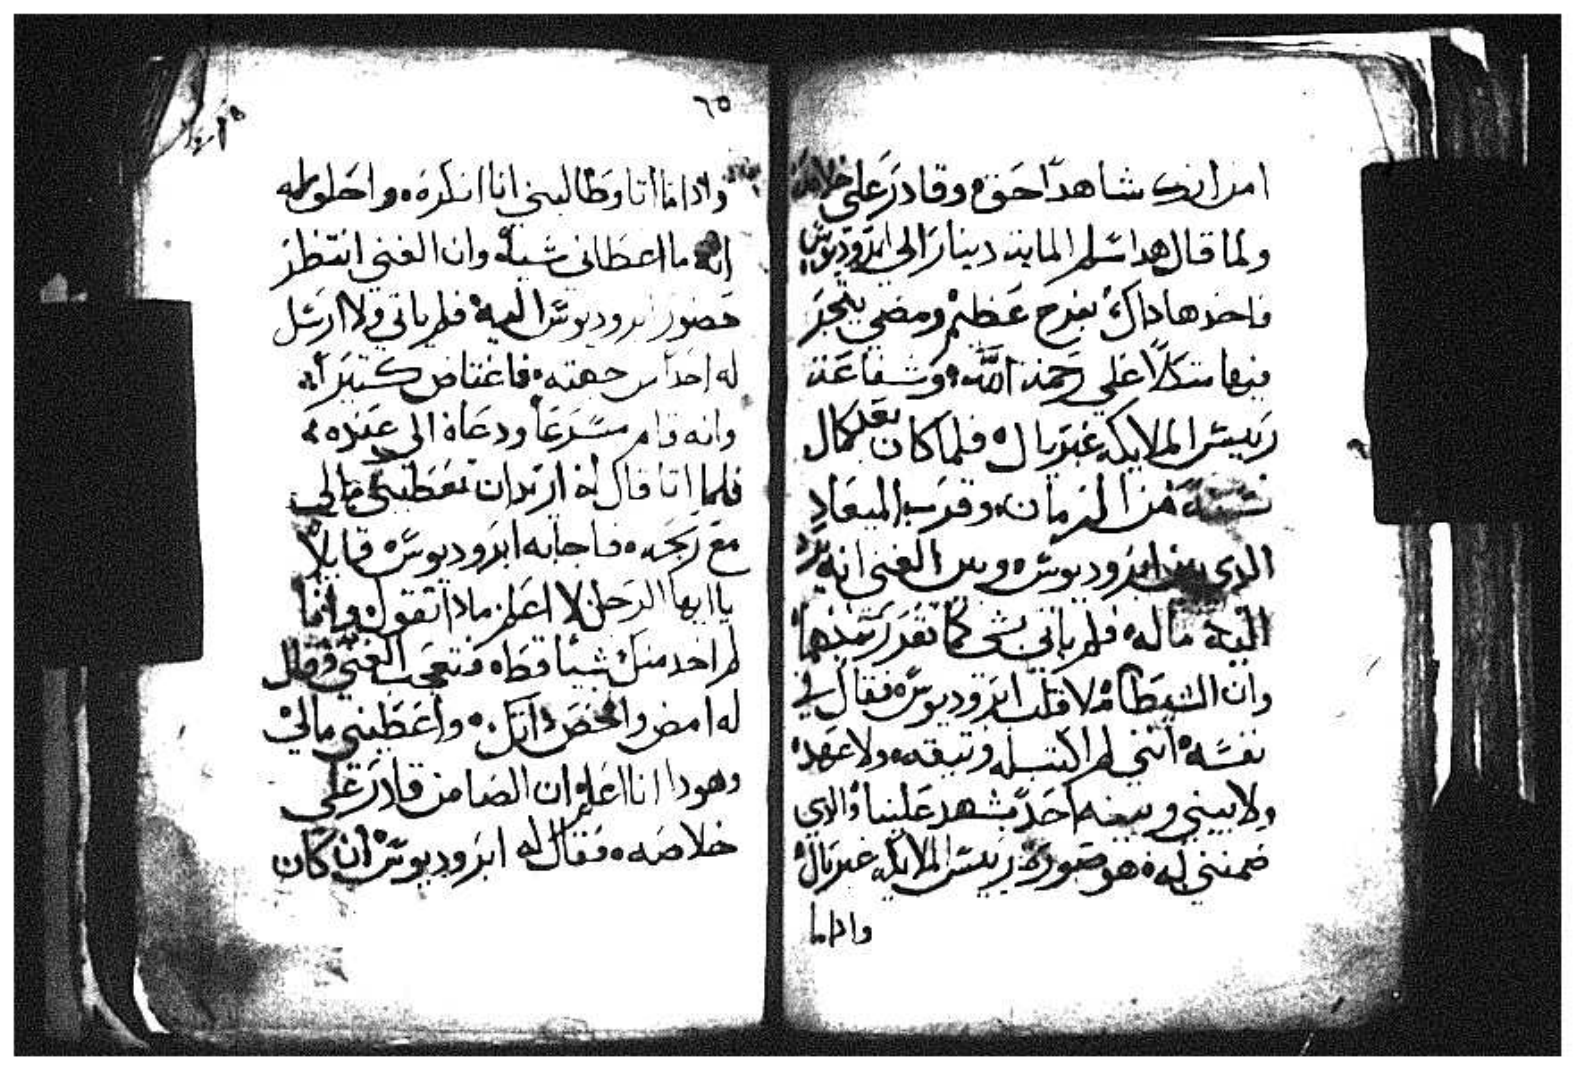 امن انك شاهداً حق وقادر على خلاص
ولما قال هدا سلم الماية دينار الى ابروديوس
فاخدها داك بفرح عظيم ومضي يتجر
فيها متكلاً على رحمة الله وشفاعة
رييس الملايكه غبريال فلما كان بعد كمال
سنة من الزمان وقرب الميعاد
الدي بين ابروديوس وبين الغني انه يرد
اليه ماله فلم ياتي بشي كما تقدر
وان الشيطان ملا قلب ابروديوس فقال في
نفسه انني لم اكتب له وتيقه ولا عهد
ولا بيني وبينه احد يشهد علينا والدي
ضمنني له هو صورة رييس الملايكه غبريال
وادا ما
٦٥
وادا ما اتا وطالبني انا انكره واحلف له
انه ما اعطاني شياً وان الغني انتظر
حضور ابروديوس اليه فلم ياتي ولا ارسل
له احداً من جهته فاغتاض كتيراً
وانه قام مسرعاً ودعاه الى عنده
فلما اتا قال له اريد ان تعطيني مالي
مع ربحه فاجابه ابروديوس قايلاً
يا ايها الرجل لا اعلم مادا تقول وانا
لم اخد منك شيا قط فتعجب الغني وقال
له امض وافحص داتك واعطيني مالي
وهودا انا اعلم ان الضامن قادر على
خلاصه فقال له ابروديوس ان كان